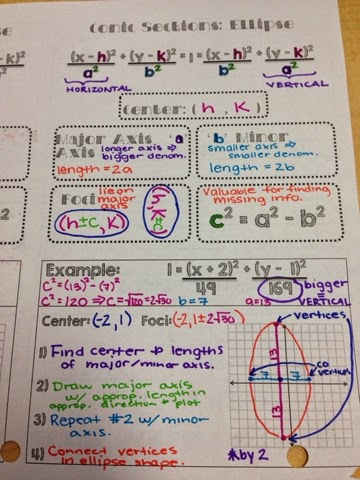 Conic Sections: Ellipse
(x-h)² + (y-k)² = 1 = (x-h)² + (y-k)²
a² b² b² a²
HORIZONTAL VERTICAL
Center: (h, k)
Major Axis 'a'
Axis longer axis ⇒ bigger denom.
length = 2a
'b' Minor
smaller axis ⇒
smaller denom.
length = 2b
Foci lie on major axis
(h±c, k) (h, k±c)
Valuable for finding
missing info.
c² = a² - b²
Example: 1 = (x+2)² + (y-1)²
49 169 bigger
c² = (13)² - (7)²
c² = 120 ⇒ c = √120 = 2√30 b=7 a=13 VERTICAL
Center: (-2, 1) Foci: (-2, 1±2√30)
vertices
co vertices
13
7 7
13
1) Find center + lengths
of major/minor axis.
2) Draw major axis
w/ approp. length in
approp. direction + plot
3) Repeat #2 w/ minor
axis.
4) Connect vertices
in ellipse shape.
*by 2